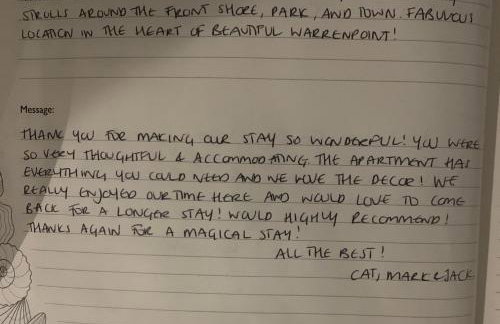 STROLLS AROUND THE FRONT SHORE, PARK, AND TOWN. FABULOUS
LOCATION IN THE HEART OF BEAUTIFUL WARRENPOINT!
Message:
THANK YOU FOR MAKING OUR STAY SO WONDERFUL! YOU WERE
SO VERY THOUGHTFUL & ACCOMMODATING. THE APARTMENT HAS
EVERYTHING YOU COULD NEED AND WE LOVE THE DECOR! WE
REALLY ENJOYED OUR TIME HERE AND WOULD LOVE TO COME
BACK FOR A LONGER STAY! WOULD HIGHLY RECOMMEND!
THANKS AGAIN FOR A MAGICAL STAY!
ALL THE BEST!
CAT, MARK & JACK